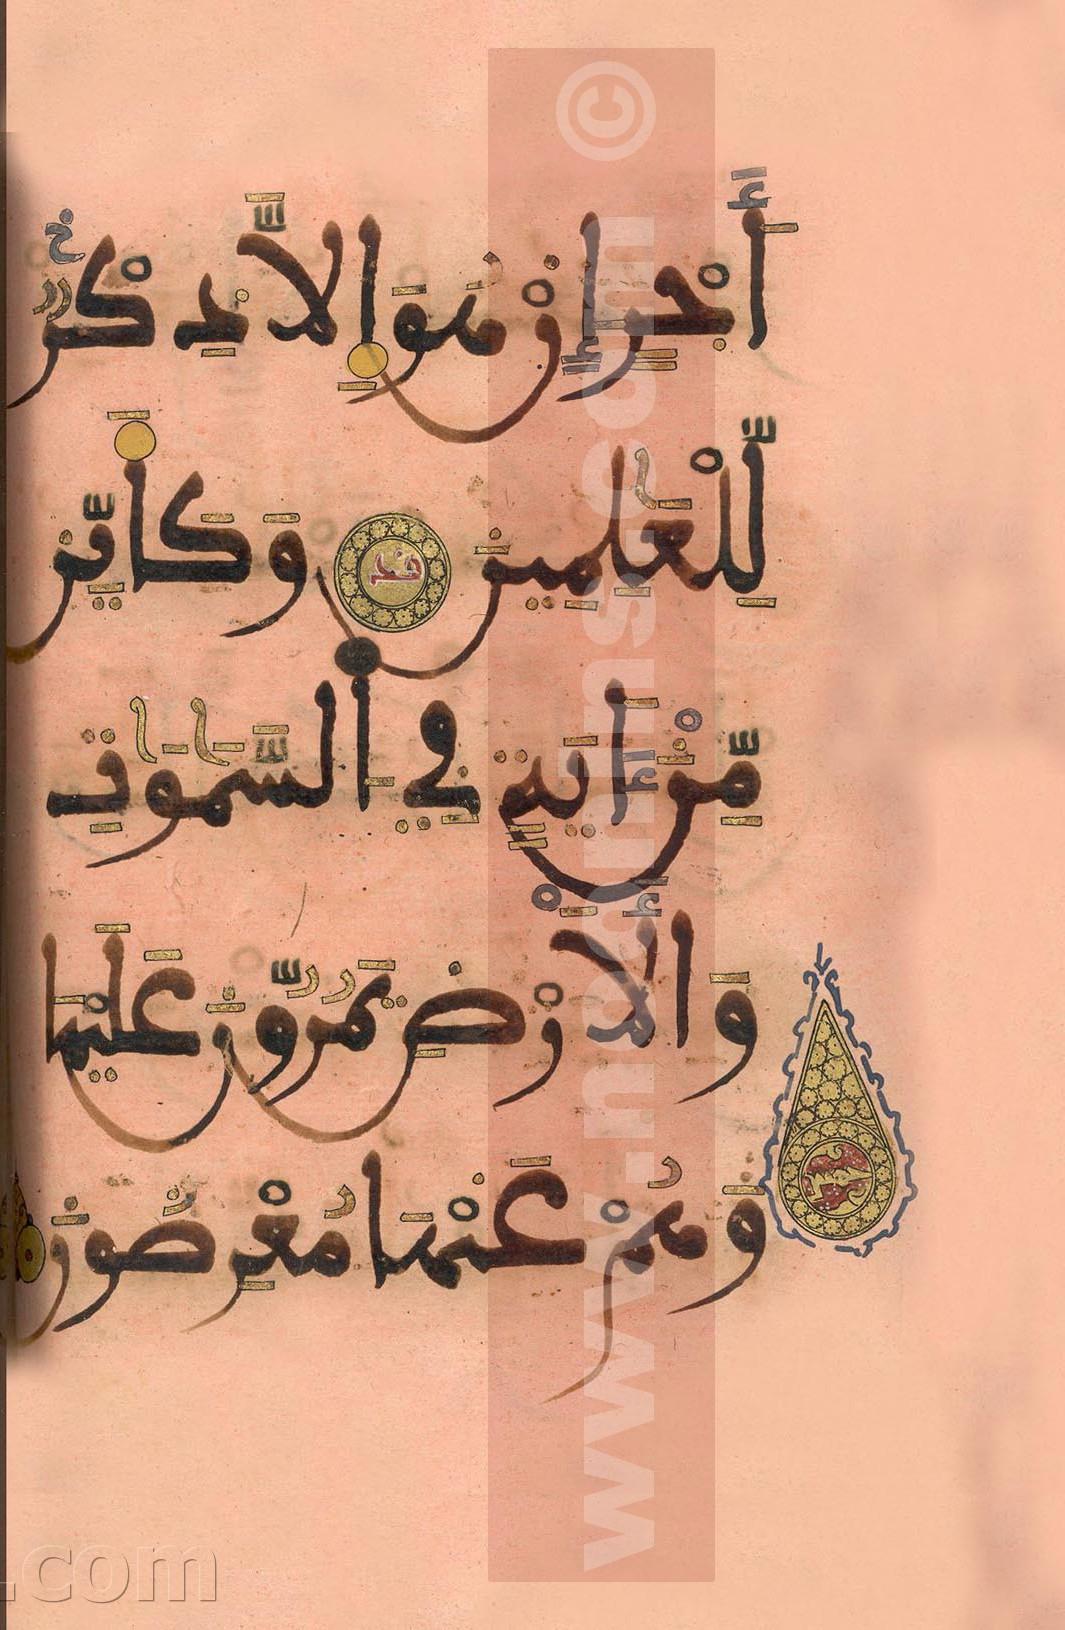 أَجْرٍ إِنْ هُوَ إِلَّا ذِكْرٌ
لِّلْعَٰلَمِينَ وَكَأَيِّن
مِّنْ ءَايَةٍ فِي السَّمَٰوَٰتِ
وَالْأَرْضِ يَمُرُّونَ عَلَيْهَا
وَهُمْ عَنْهَا مُعْرِضُونَ
© www.
.com